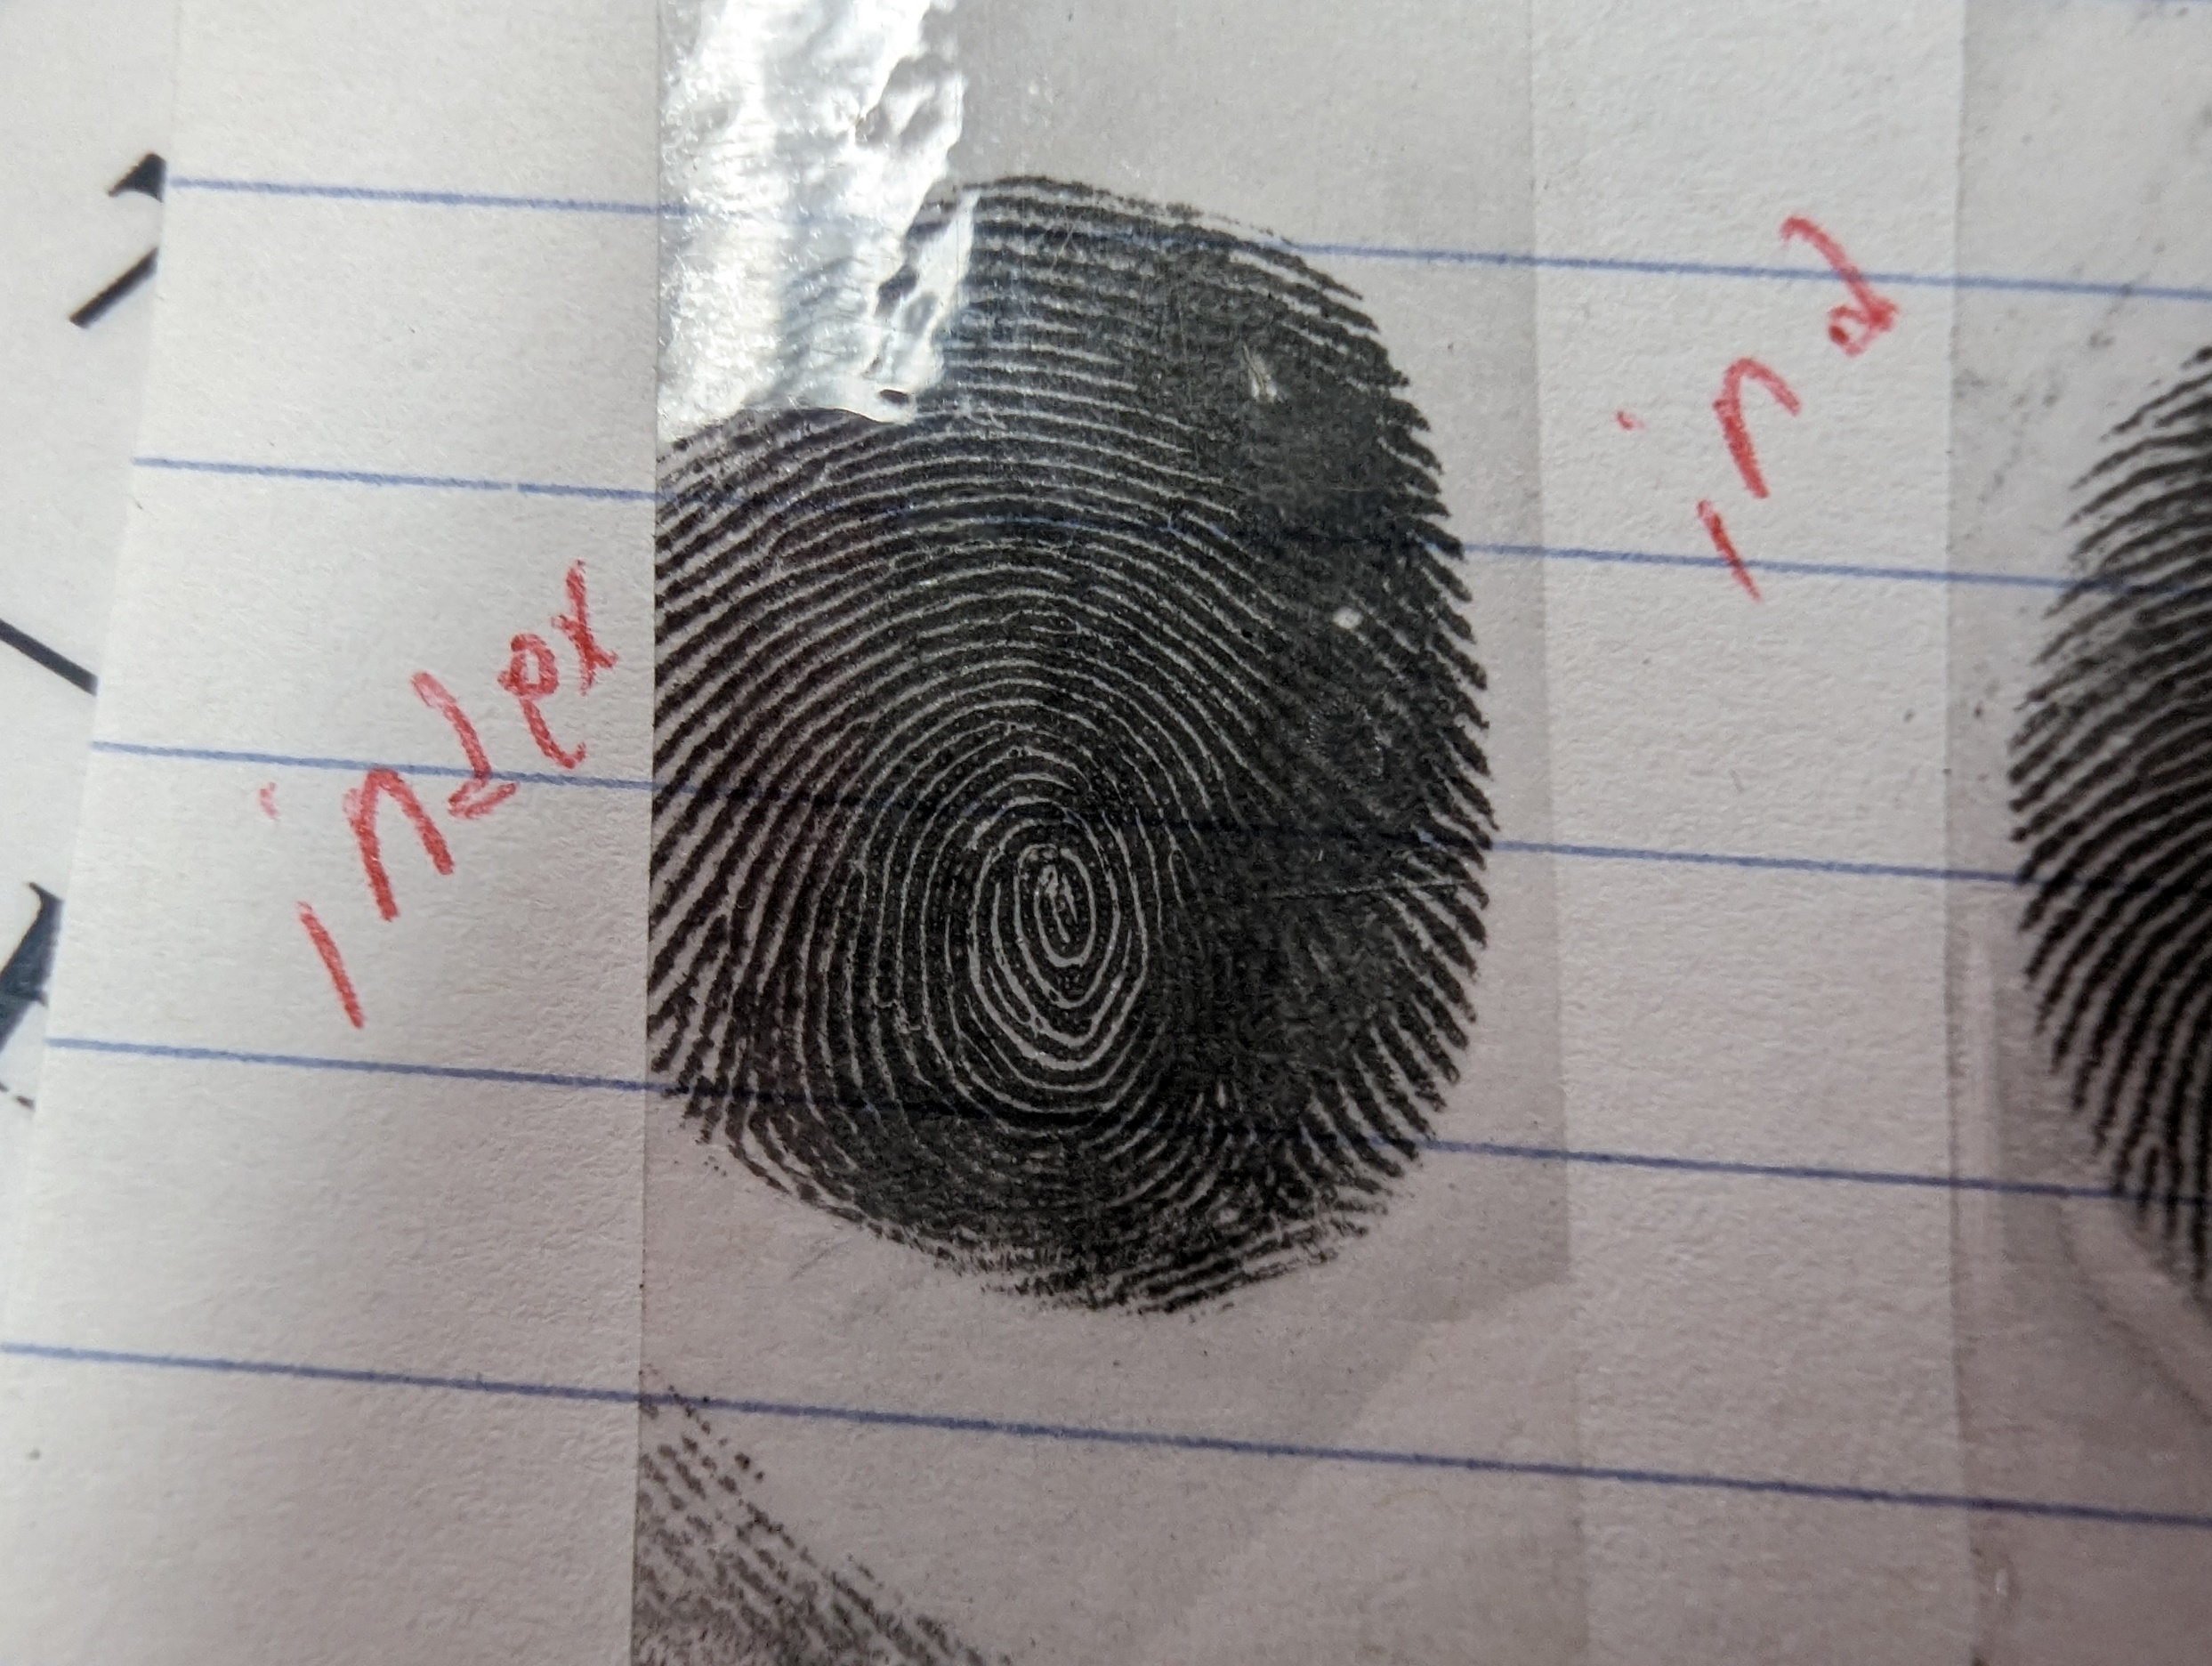 index
ind